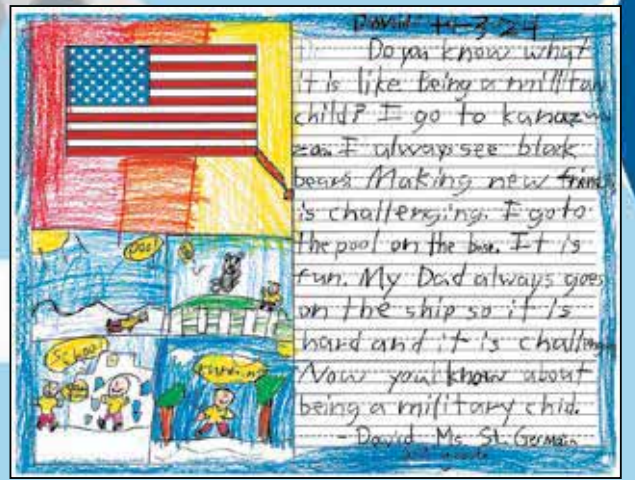 David 4-3-24
Do you know what
it is like Being a millitary
child? I go to kanazawa
zoo. I always see black
bears. Making new friends
is challenging. I go to
the pool on the base. It is
fun. My Dad always goes
on the ship so it is
hard and it is challenging
Now you know about
being a military chid.
- David Ms. St. Germain
grade
pool
School
running